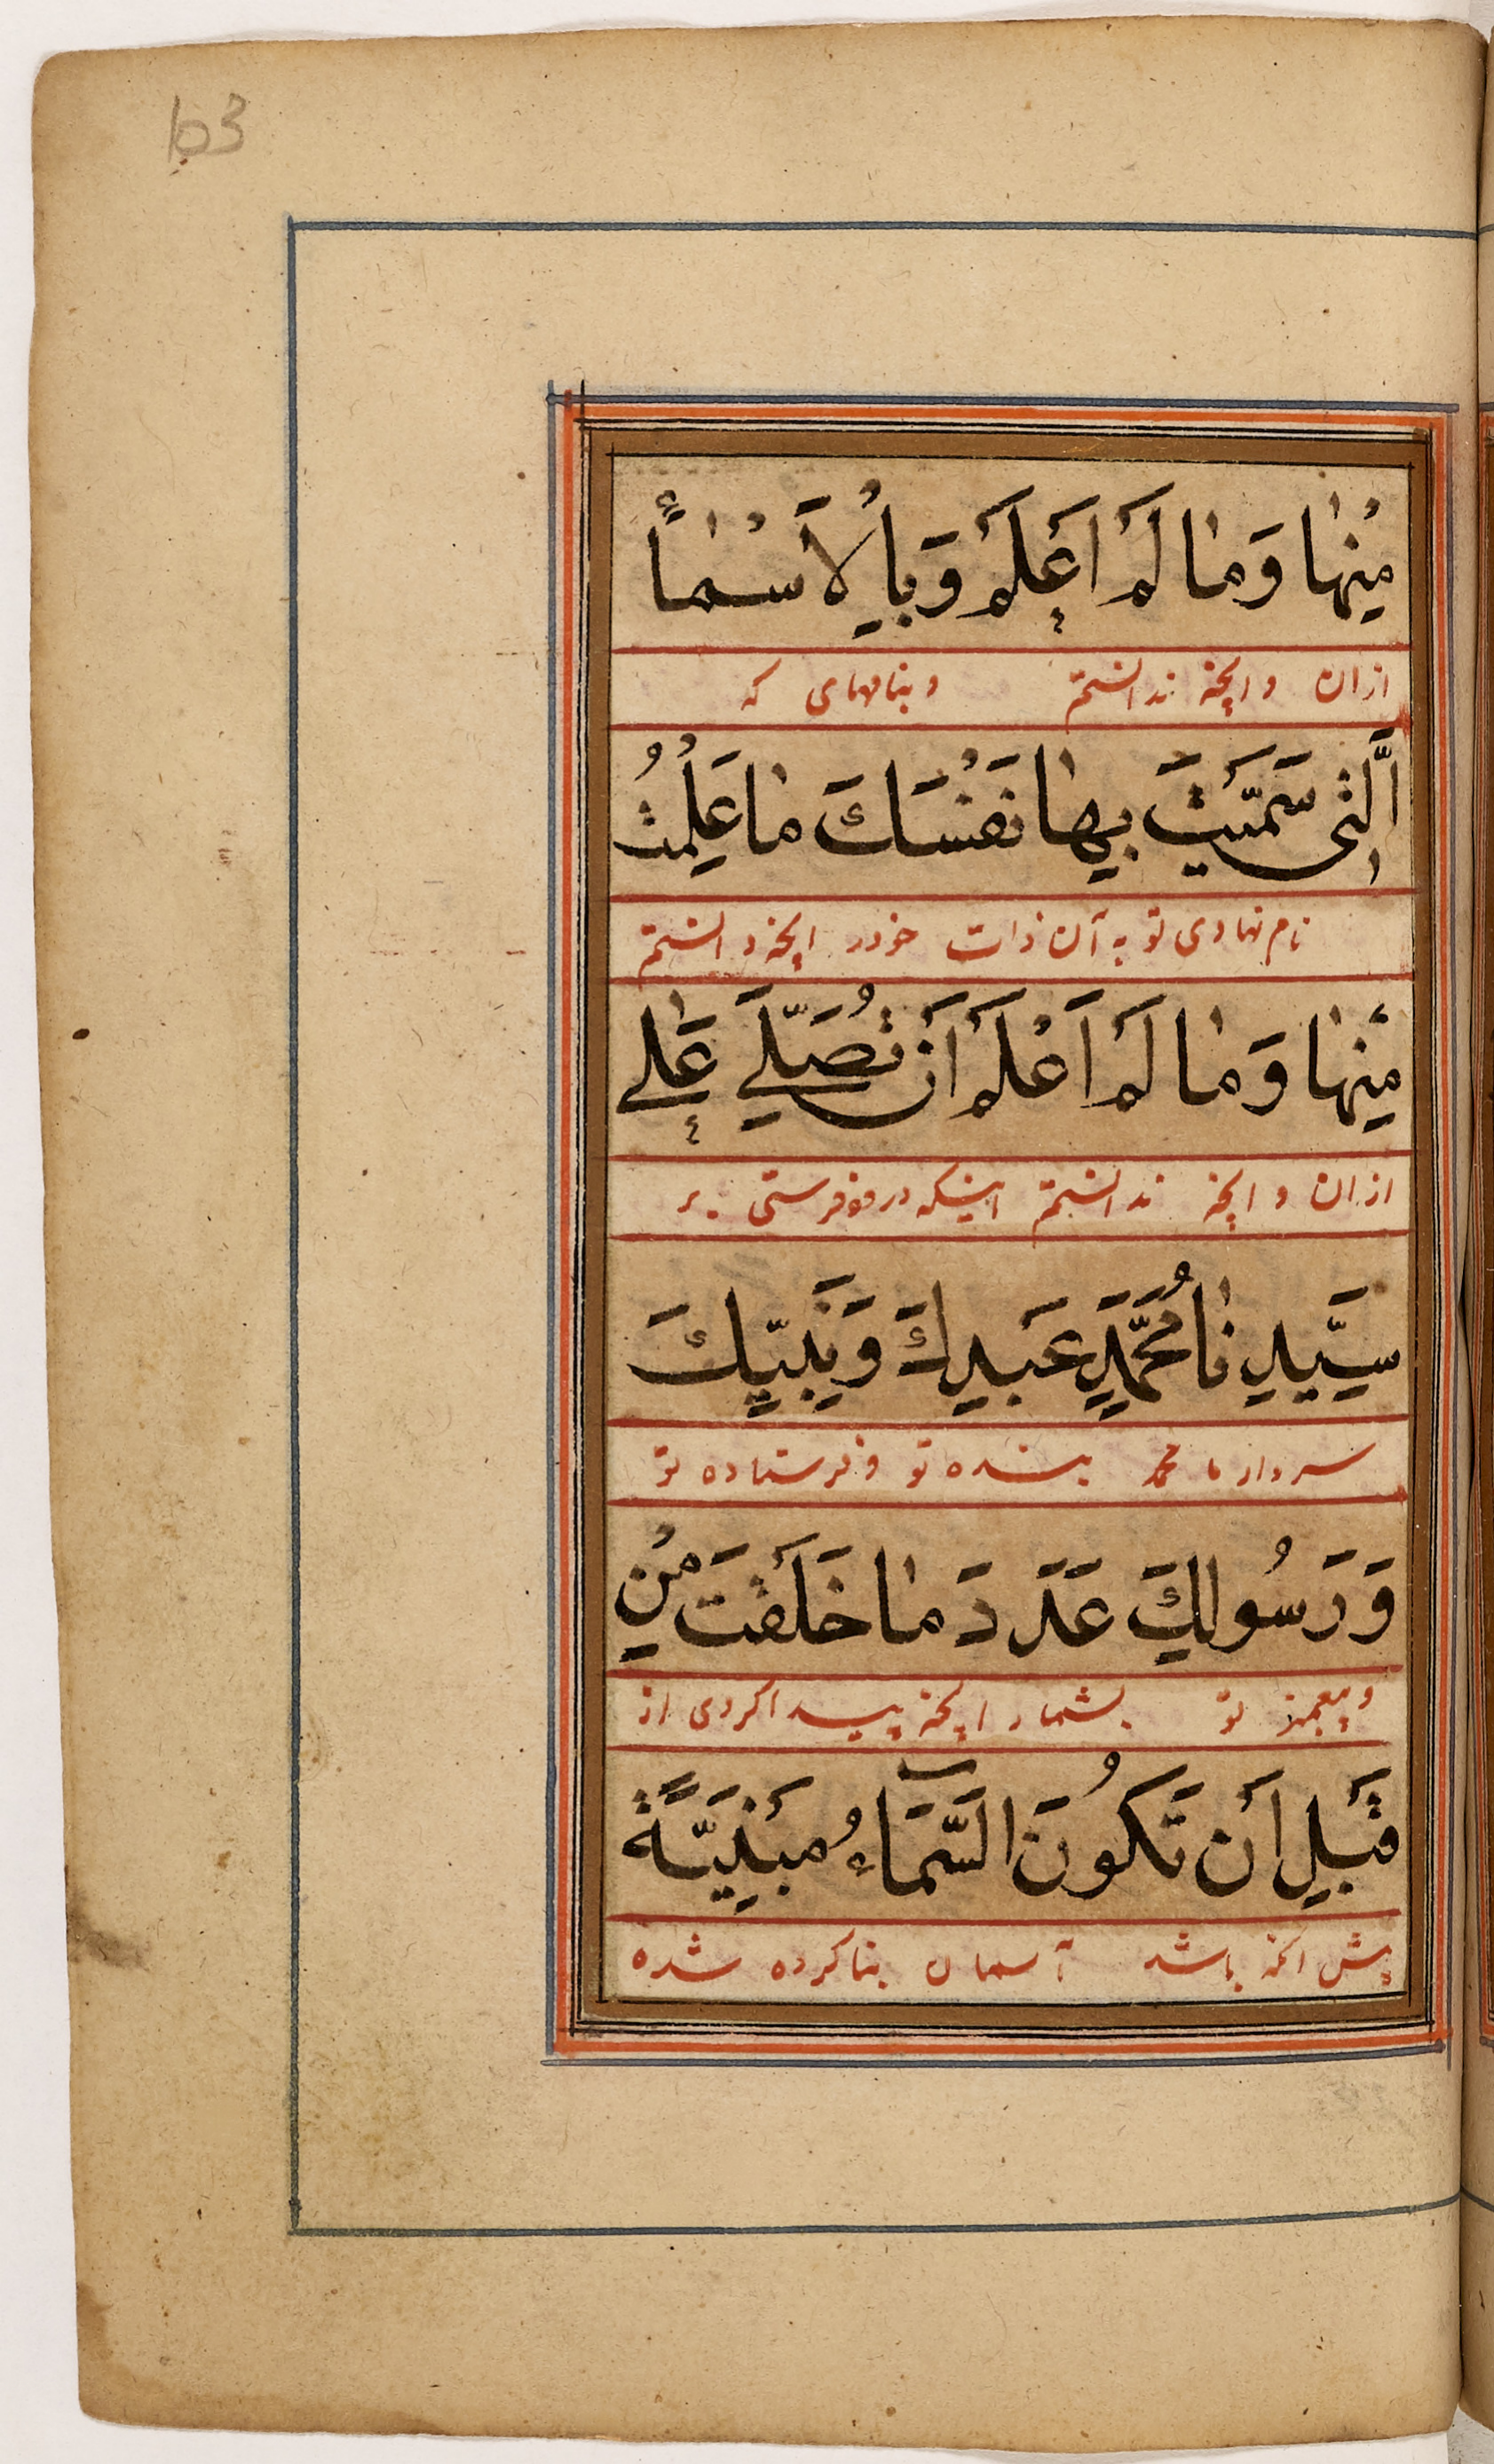 163
مِنْهٰا وَمٰا لَمْ اَعْلَمْ وَبِالْاَسْمٰاۤءِ
ازان و انچه ندانستم و بنامهای که
الَّتِى سَمَّيْتَ بِهٰا نَفْسَكَ مٰا عَلِمْتُ
نام نهادی تو به آن ذات خود را انچه دانستم
مِنْهٰا وَمٰا لَمْ اَعْلَمْ اَنْ تُصَلِّيَ عَلٰى
ازان و انچه ندانستم اینکه درود فرستی بر
سَيِّدِنٰا مُحَمَّدٍ عَبْدِكَ وَنَبِيِّكَ
سردار ما محمد بنده تو و فرستاده تو
وَرَسُولِكَ عَدَدَ مٰا خَلَقْتَ مِنْ
و پیغمبر تو بشمار انچه پیدا کردی از
قَبْلِ اَنْ تَكُونَ السَّمَاۤءُ مَبْنِيَّةً
پیش انکه باشد آسمان بنا کرده شده